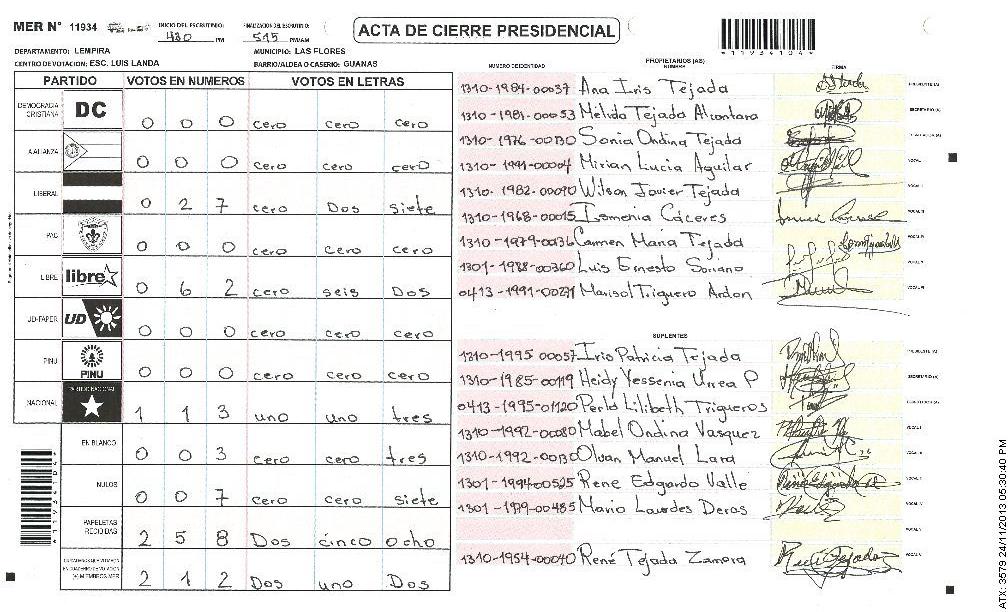 MER N° 11934
INICIO DEL ESCRUTINIO: 430 PM
FINALIZACION DEL ESCRUTINIO: 515 PM/AM
ACTA DE CIERRE PRESIDENCIAL
A11934104
DEPARTAMENTO: LEMPIRA
MUNICIPIO: LAS FLORES
CENTRO DE VOTACION: ESC. LUIS LANDA
BARRIO/ALDEA O CASERIO: GUANAS
PARTIDO VOTOS EN NUMEROS VOTOS EN LETRAS
DEMOCRACIA CRISTIANA DC 0 0 0 cero cero cero
A.ALIANZA 0 0 0 cero cero cero
LIBERAL 0 2 7 cero Dos siete
PAC 0 0 0 cero cero cero
LIBRE libre 0 6 2 cero seis Dos
UD-FAPER UD 0 0 0 cero cero cero
PINU PINU 0 0 0 cero cero cero
NACIONAL PARTIDO NACIONAL 1 1 3 uno uno tres
EN BLANCO 0 0 3 cero cero tres
NULOS 0 0 7 cero cero siete
PAPELETAS RECIBIDAS 2 5 8 Dos cinco ocho
(+) MIEMBROS MER 2 1 2 Dos uno Dos
NUMERO DE IDENTIDAD PROPIETARIOS (AS) NOMBRE FIRMA
1310-1984-00037 Ana Iris Tejada PRESIDENTE (A)
1310-1981-00053 Melida Tejada Alcantara SECRETARIO (A)
1310-1976-00130 Sonia Ondina Tejada ESCRUTADOR (A)
1310-1991-00004 Mirian Lucia Aguilar VOCAL I
1310-1982-00090 Wilson Javier Tejada VOCAL II
1310-1968-00015 Ismenia Cáceres VOCAL III
1310-1979-0036 Carmen Maria Tejada VOCAL IV
1301-1988-00360 Luis Ernesto Soriano VOCAL V
0413-1991-00291 Marisol Triguero Ardon VOCAL VI
SUPLENTES
1310-1995 00057 Iris Patricia Tejada PRESIDENTE (A)
1310-1985-00119 Heidy Yessenia Urrea P SECRETARIO (A)
0413-1995-01120 Perla Lilibeth Trigueros ESCRUTADOR (A)
1310-1992-00080 Mabel Ondina Vasquez VOCAL I
1310-1992-00130 Olvan Manuel Lara VOCAL II
1301-1994-00525 Rene Edgardo Valle VOCAL III
1301-1979-00485 Mario Lourdes Deras VOCAL IV
VOCAL V
1310-1954-00040 René Tejada Zamora
A11934104
ATX: 3579 24/11/2013 05:30:40 PM